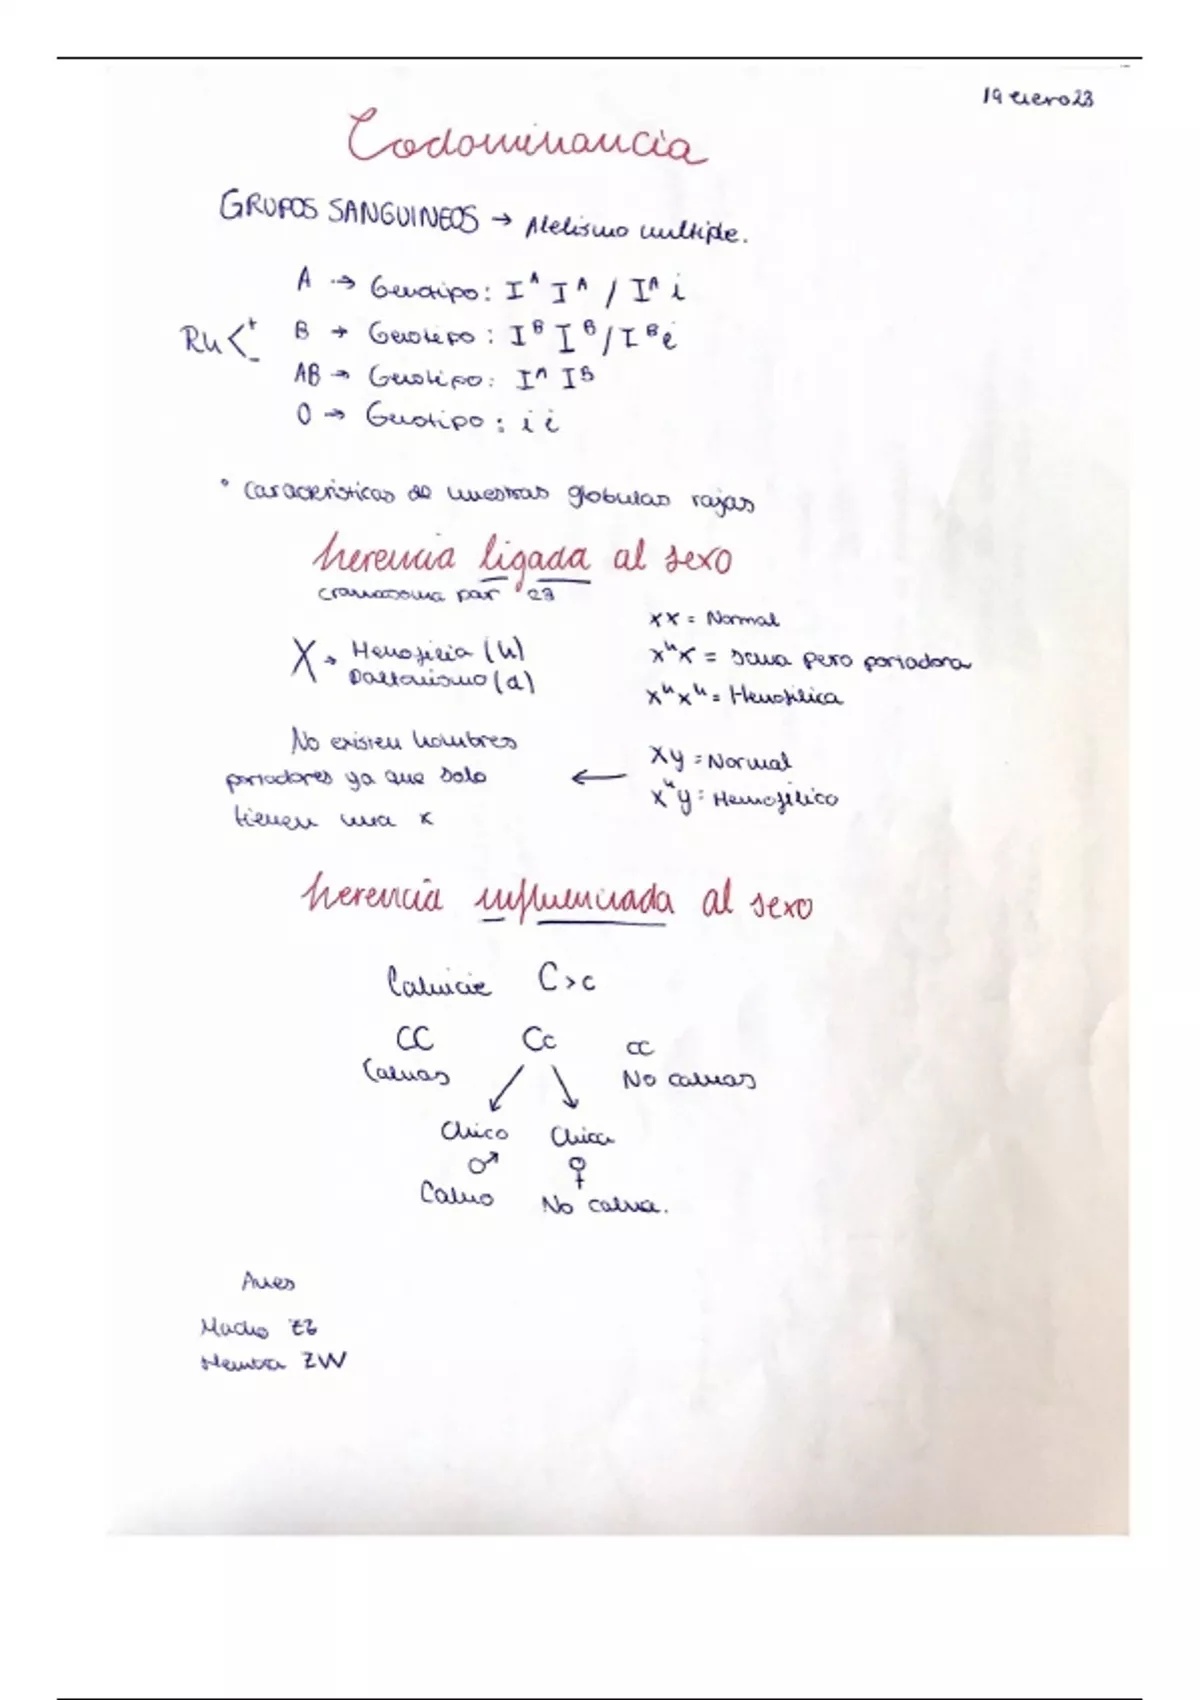 19 enero 23
Codominancia
GRUPOS SANGUINEOS → Alelismo multiple.
A → Genotipo: I^A I^A / I^A i
Rh < + -
B → Genotipo: I^B I^B / I^B i
AB → Genotipo: I^A I^B
O → Genotipo: i i
• Caracteristicas de nuestras globulas rojas
herencia ligada al sexo
cromosoma par 23
X → Hemofilia (h)
Daltonismo (d)
XX = Normal
X^h X = Sana pero portadora
X^h X^h = Hemofilica
No existen hombres
portadores ya que solo
tienen una x
←
Xy = Normal
X^h y = Hemofilico
herencia influenciada al sexo
Calvicie C>c
CC Cc cc
Calvas No calvas
Chico Chica
♂ ♀
Calvo No calva.
Aves
Macho ZZ
Hembra ZW